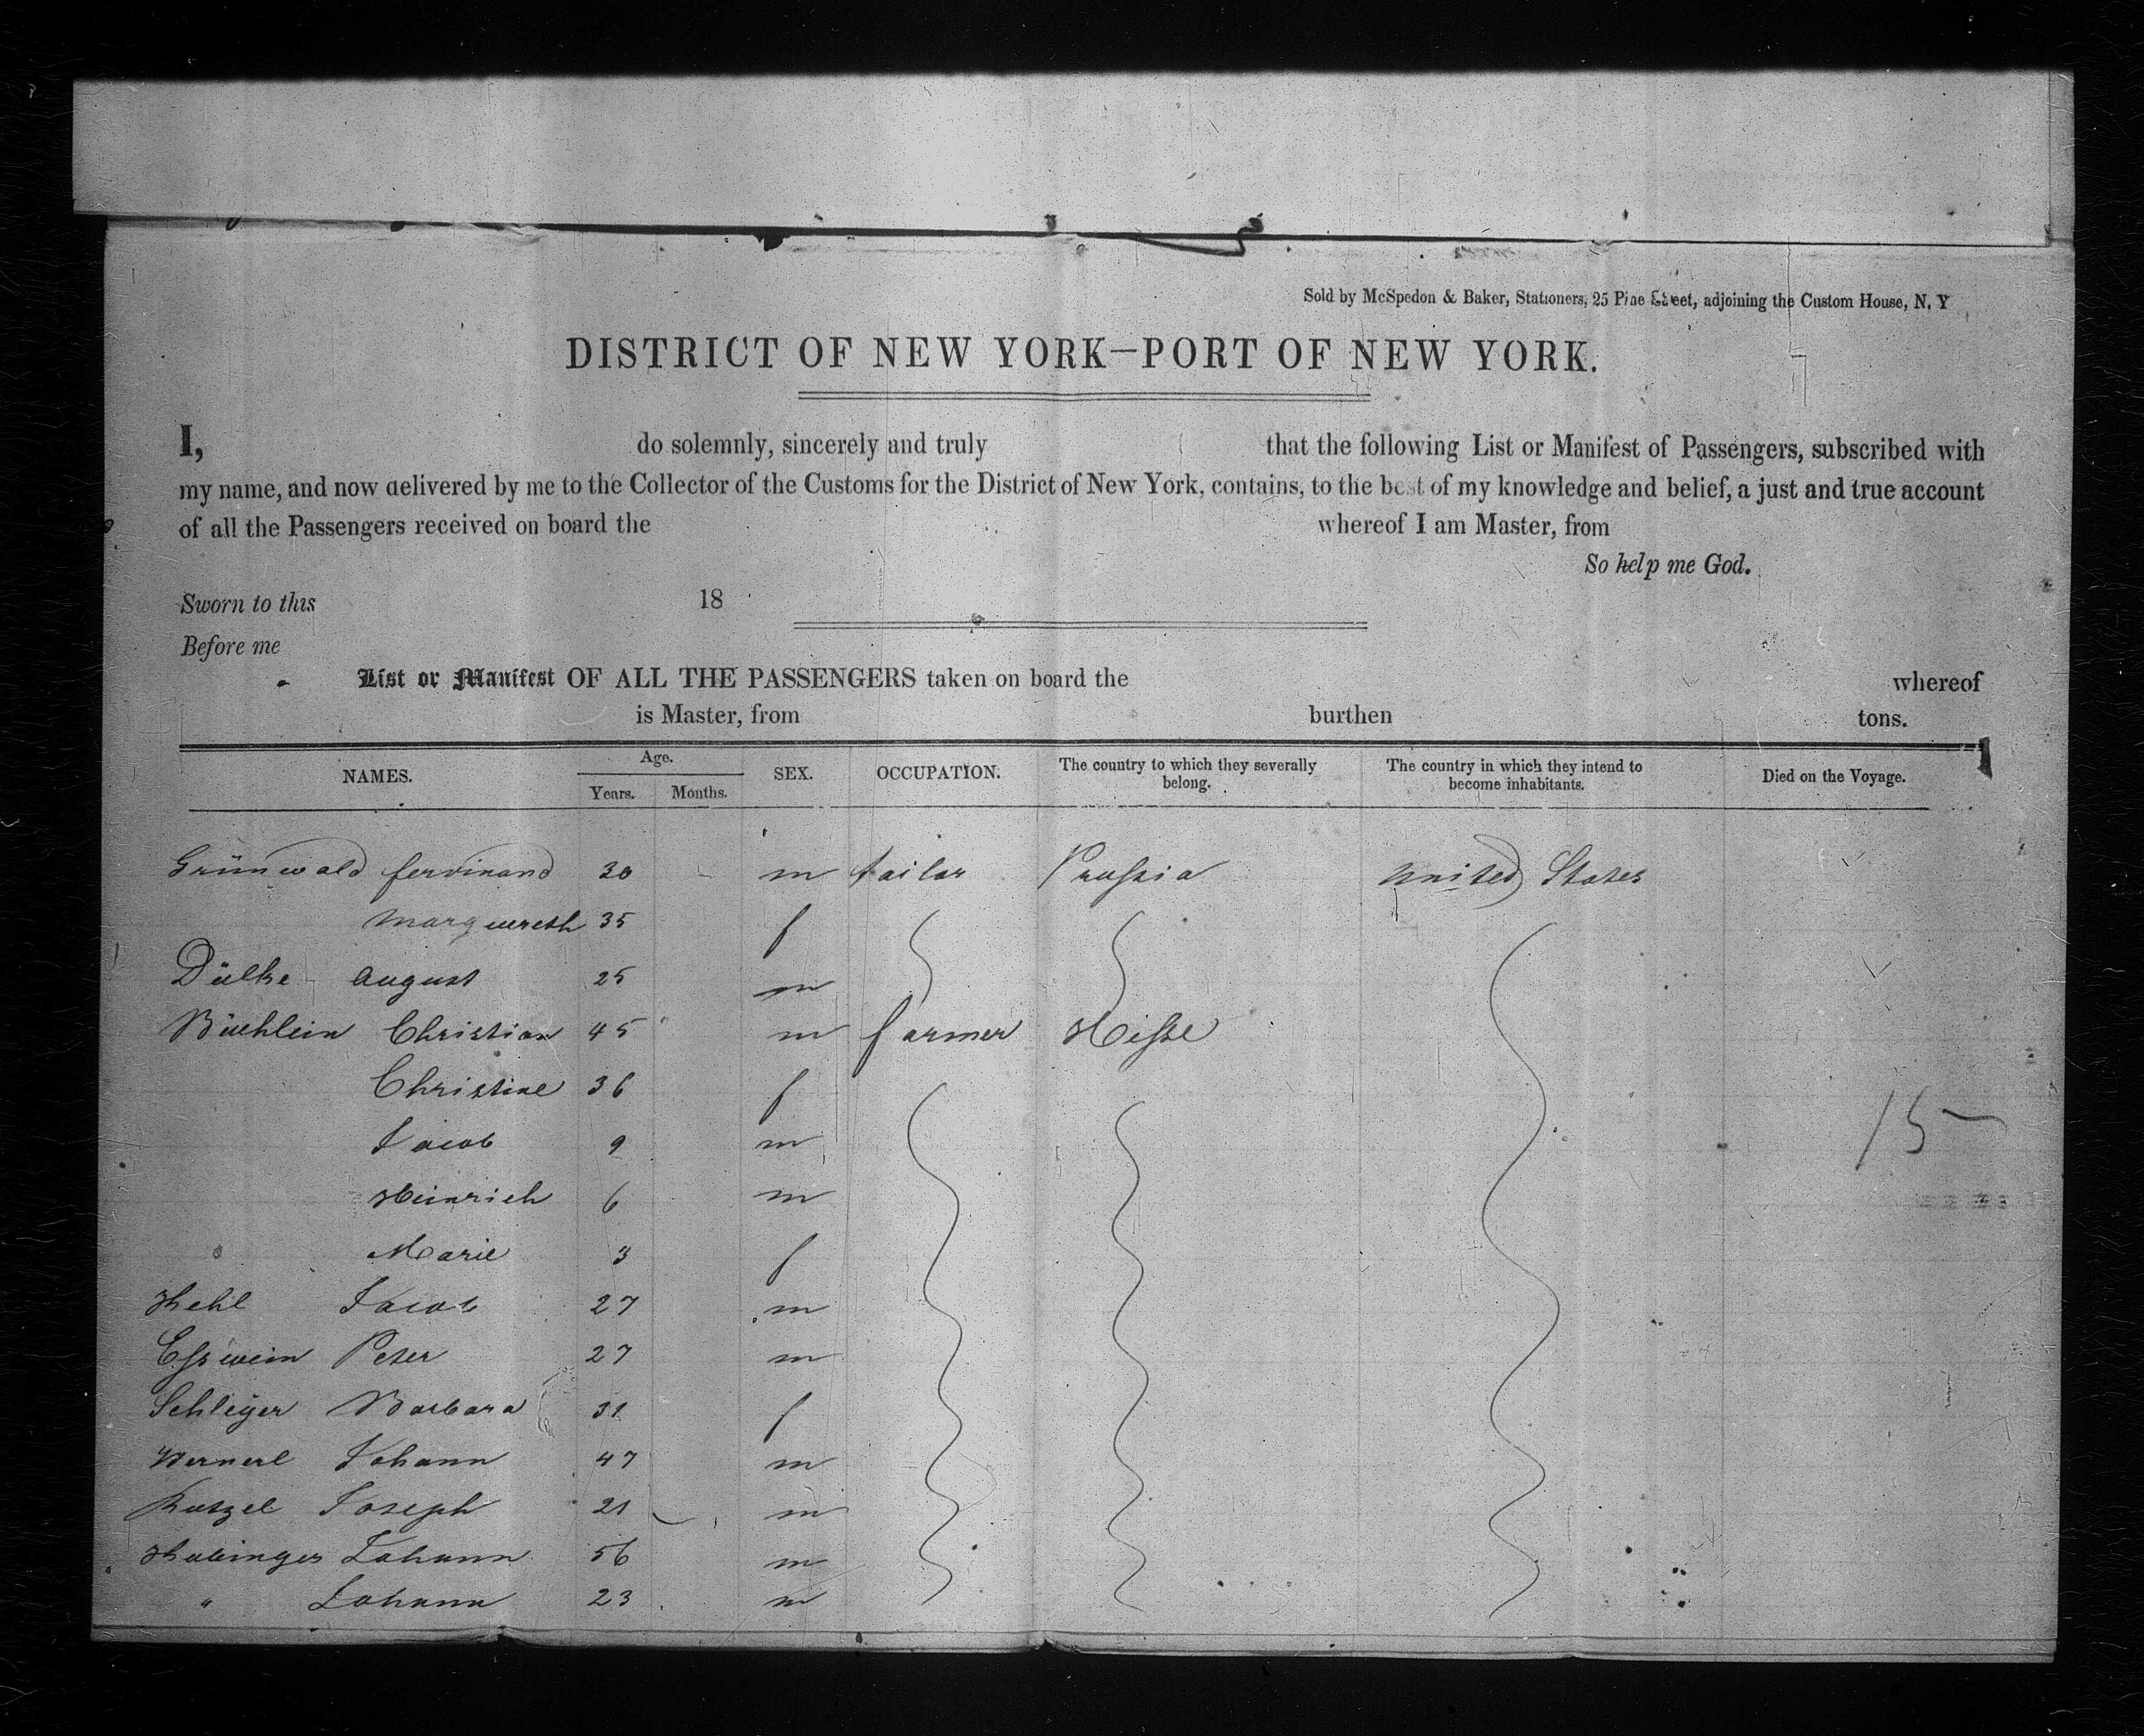 Sold by McSpedon & Baker, Stationers, 25 Pine Street, adjoining the Custom House, N. Y
DISTRICT OF NEW YORK—PORT OF NEW YORK.
I, do solemnly, sincerely and truly that the following List or Manifest of Passengers, subscribed with
my name, and now delivered by me to the Collector of the Customs for the District of New York, contains, to the best of my knowledge and belief, a just and true account
of all the Passengers received on board the whereof I am Master, from
So help me God.
Sworn to this 18
Before me
List or Manifest OF ALL THE PASSENGERS taken on board the whereof
is Master, from burthen tons.
NAMES. Age. Years. Months. SEX. OCCUPATION. The country to which they severally belong. The country in which they intend to become inhabitants. Died on the Voyage.
Grünwald ferdinand 30 m tailor Prussia united States
Marguereth 35 f
Dülke August 25 m
Büehlein Christian 45 m farmer Hesse
Christine 36 f
Jacob 9 m
Heinrich 6 m
" Marie 3 f
15
Hehl Jacob 27 m
Esswein Peter 27 m
Schleyer Barbara 31 f
Wernerl Johann 47 m
Kutzel Joseph 21 m
Johann 56 m
" Johann 23 m